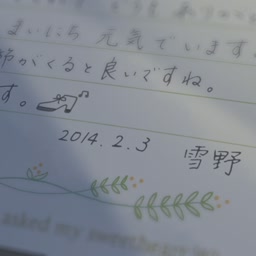 まいにち 元気でいます。
節がくると良いですね。
す。
2014.2.3 雪野
asked my sweetheart